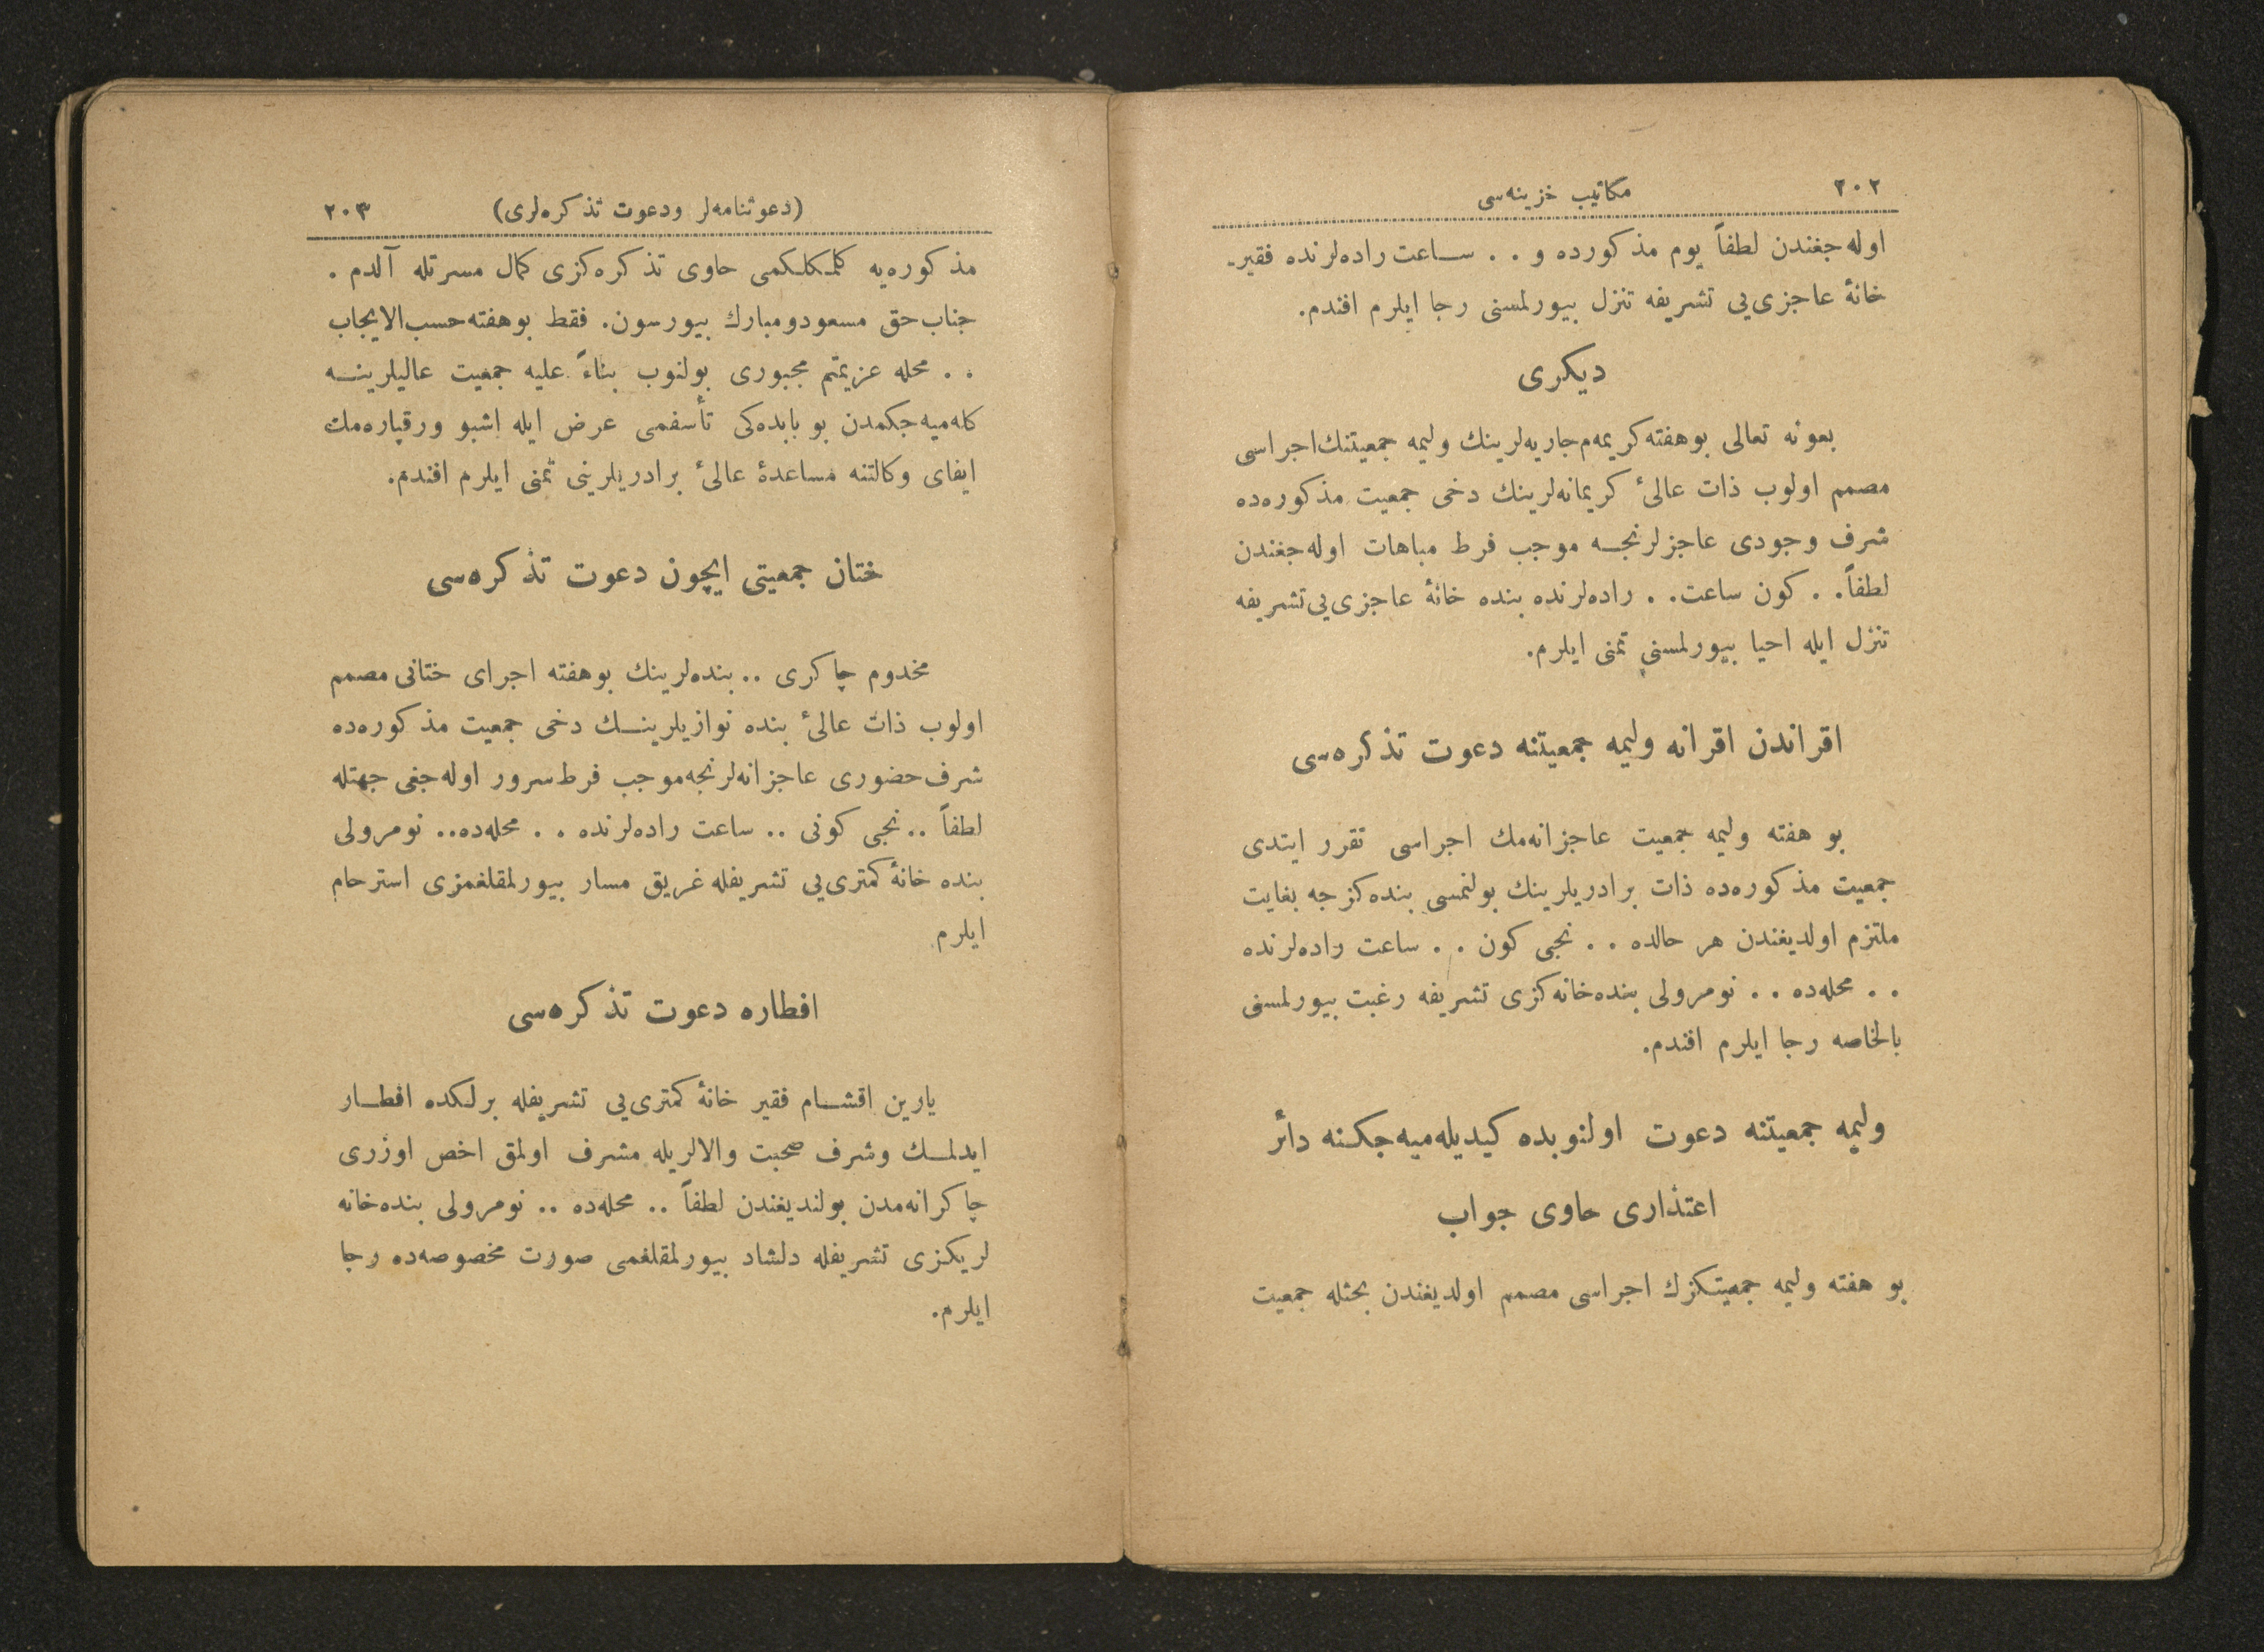 ٢٠٢ مكاتيب خزينه‌سى
اوله‌جغندن لطفاً يوم مذكورده و . . ساعت راده‌لرنده فقير-
خانهٔ عاجزى‌يى تشريفه تنزل بيورلمسنى رجا ايلرم افندم.
ديكرى
بعونه تعالى بو هفته كريمه‌م جاريه‌لرينك وليمه جمعيتنك اجراسى
مصمم اولوب ذات عالئ كريمانه‌لرينك دخى جمعيت مذكوره‌ده
شرف وجودى عاجزلرنجه موجب فرط مباهات اوله‌جغندن
لطفاً . . كون ساعت . . راده‌لرنده بنده خانهٔ عاجزى‌يى تشريفه
تنزل ايله احيا بيورلمسنى تمنى ايلرم.
اقراندن اقرانه وليمه جمعيتنه دعوت تذكره‌سى
بو هفته وليمه جمعيت عاجزانه‌مك اجراسى تقرر ايتدى
جمعيت مذكوره‌ده ذات برادريلرينك بولنمسى بنده‌كزجه بغايت
ملتزم اولديغندن هر حالده . . نجى كون . . ساعت راده‌لرنده
. . محله‌ده . . نومرولى بنده‌خانه‌كزى تشريفه رغبت بيورلمسنى
بالخاصه رجا ايلرم افندم.
وليمه جمعيتنه دعوت اولنوبده كيديله‌ميه‌جكنه دائر
اعتذارى حاوى جواب
بو هفته وليمه جمعيتكزك اجراسى مصمم اولديغندن بحثله جمعيت
(دعوتنامه‌لر ودعوت تذكره‌لرى) ٢٠٣
مذكوره‌يه كلمكلكمى حاوى تذكره‌كزى كمال مسرتله آلدم .
جناب حق مسعود و مبارك بيورسون. فقط بو هفته حسب‌الايجاب
. . محله عزيمتم مجبورى بولنوب بناءً عليه جمعيت عاليلرينه
كله‌ميه‌جكمدن بو بابده‌كى تأسفمى عرض ايله اشبو ورقپاره‌مك
ايفاى وكالتنه مساعدهٔ عالئ برادريلرينى تمنى ايلرم افندم.
ختان جمعيتى ايچون دعوت تذكره‌سى
مخدوم چاكرى .. بنده‌لرينك بو هفته اجراى ختانى مصمم
اولوب ذات عالئ بنده نوازيلرينك دخى جمعيت مذكوره‌ده
شرف حضورى عاجزانه‌لرنجه موجب فرط سرور اوله‌جغى جهتله
لطفاً .. نجى كونى .. ساعت راده‌لرنده . . محله‌ده.. نومرولى
بنده خانهٔ كمترى‌يى تشريفله غريق مسار بيورلمقلغمزى استرحام
ايلرم
افطاره دعوت تذكره‌سى
يارين اقشام فقير خانهٔ كمترى‌يى تشريفله برلكده افطار
ايدلمك وشرف صحبت والالريله مشرف اولمق اخص اوزرى
چاكرانه‌مدن بولنديغندن لطفاً .. محله‌ده .. نومرولى بنده‌خانه
لريكزى تشريفله دلشاد بيورلمقلغمى صورت مخصوصه‌ده رجا
ايلرم.